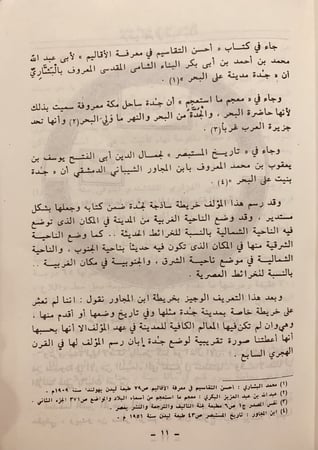 جاء في كتاب « أحسن التقاسيم في معرفة الأقاليم » لأبي عبد الله
محمد بن أحمد بن أبي بكر البناء الشامي المقدسي المعروف بالبشاري
أن « جُدة مدينة على البحر »(١).
وجاء في « معجم ما استعجم » أن جدة ساحل مكة معروفة سميت بذلك
لأنها حاضرة البحر ، والجُدة من البحر والنهر ما ولي البحر(٢) وأنها تحد
جزيرة العرب غرباً(٣).
وجاء في « تاريخ المستبصر » لجمال الدين أبي الفتح يوسف بن
يعقوب بن محمد المعروف بابن المجاور الشيباني الدمشقي أن « جدة
بنيت على البحر »(٤).
وقد رسم هذا المؤلف خريطة ساذجة لجدة ضمن كتابه وجعلها بشكل
مستدير . وقد وضع الناحية الغربية من المدينة في المكان الذي توضع
فيه الناحية الشمالية بالنسبة للخرائط الحديثة .. كما وضع الناحية
الشرقية منها في المكان الذي تكون فيه حديثاً بناحية الجنوب ، والناحية
الشمالية في موضع ناحية الشرق ، والجنوبية في مكان الغربية ..
بالنسبة للخرائط العصرية .
وبعد هذا التعريف الوجيز بخريطة ابن المجاور نقول : اننا لم نعثر
على خريطة خاصة بمدينة جدة مثلها وفي تاريخ وضعها أو أقدم منها ،
وهي وان لم تكن فيها المعالم الكافية للمدينة في عهد المؤلف الا أنها بحسبها
أنها أعطتنا صورة تقريبية لوضع جدة إبان رسم المؤلف لها في القرن
الهجري السابع .
(١) محمد البشاري : أحسن التقاسيم في معرفة الأقاليم ص٧٩ طبعة ليدن بهولندا سنة ١٩٠٩م .
(٢) عبد الله بن عبد العزيز البكري : معجم ما استعجم من أسماء البلاد والمواضع ص٣٧١ الجزء الثاني .
(٣) نفس المصدر ج١ ص٦ مطبعة لجنة التأليف والترجمة والنشر بمصر .
(٤) ابن المجاور : تاريخ المستبصر ص٤٣ طبعة ليدن سنة ١٩٥١ م .
— ١١ —